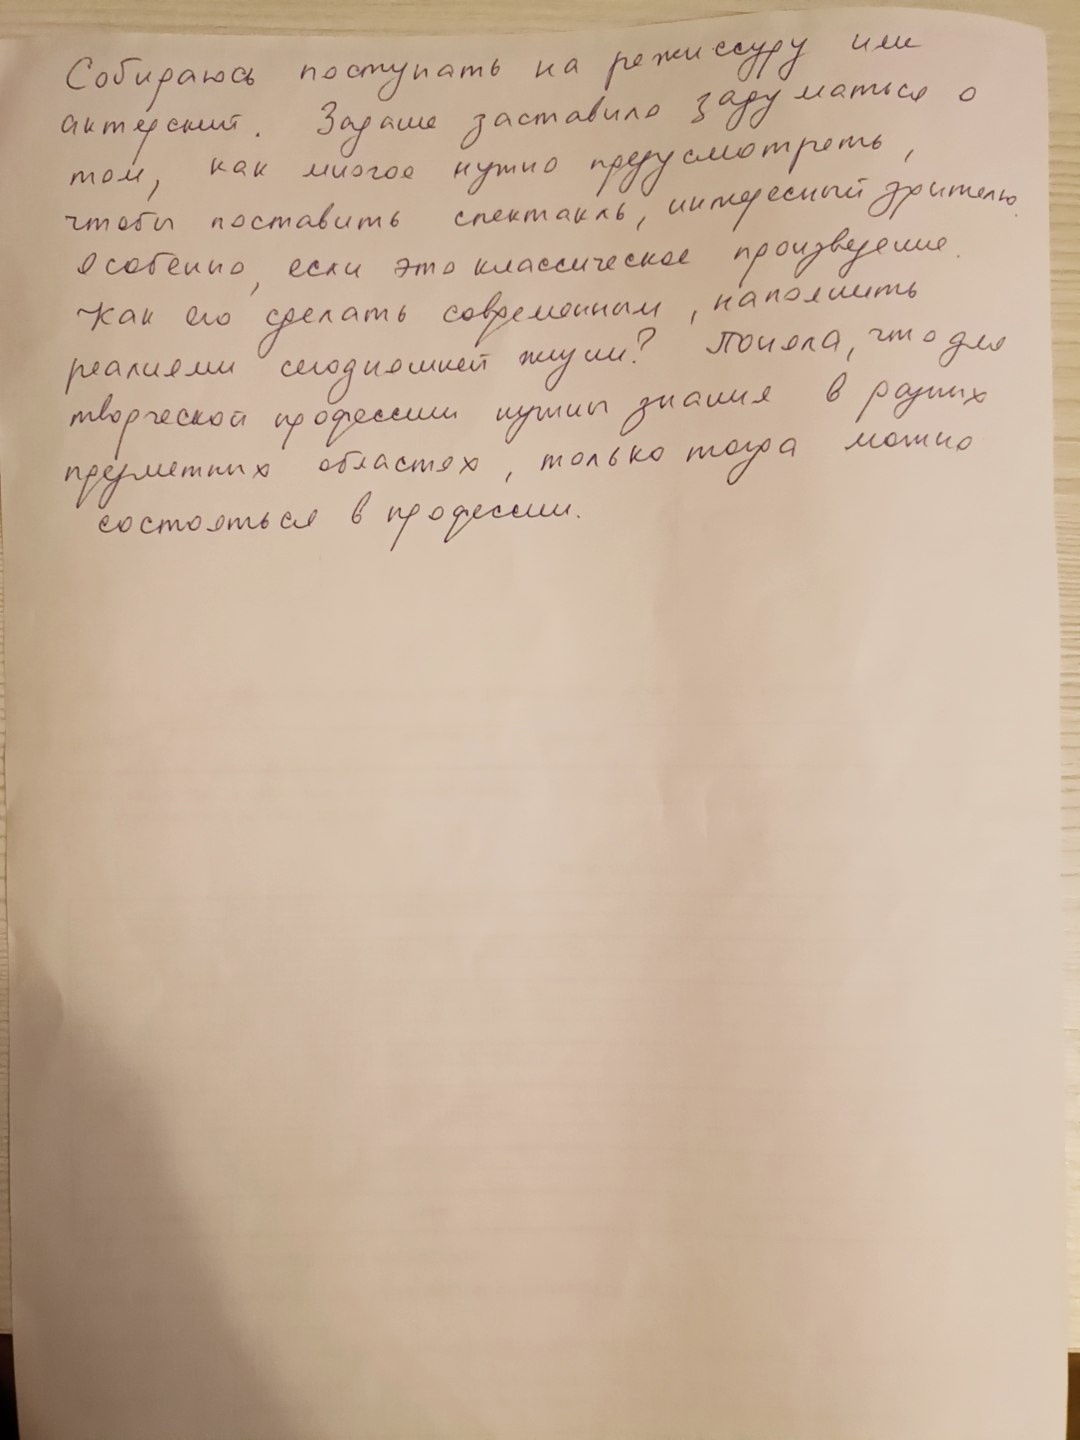 Собираюсь поступать на режиссуру или
актерский. Задание заставило задуматься о
том, как многое нужно предусмотреть,
чтобы поставить спектакль, интересный зрителю.
Особенно, если это классическое произведение.
Как его сделать современным, наполнить
реалиями сегодняшней жизни? Поняла, что для
творческой профессии нужны знания в разных
предметных областях, только тогда можно
состояться в профессии.